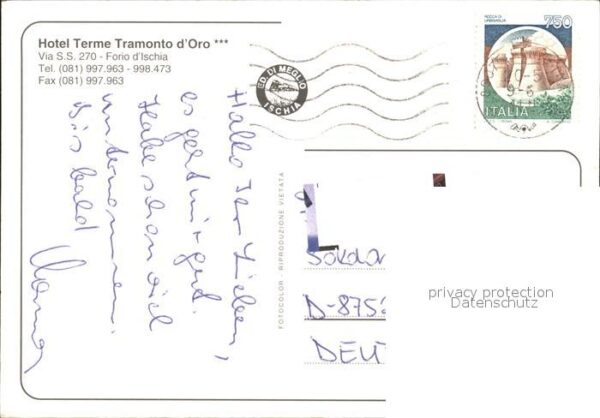 Hotel Terme Tramonto d'Oro ***
Via S.S. 270 - Forio d'Ischia
Tel. (081) 997.963 - 998.473
Fax (081) 997.963
ED. DI MEGLIO
ISCHIA
ROCCA DI
URBISAGLIA
750
ITALIA
Hallo Ihr Lieben,
es geht mir gut.
Habe schon viel
unternommen.
Bis bald
FOTOCOLOR - RIPRODUZIONE VIETATA
D-875
DEU
privacy protection
Datenschutz